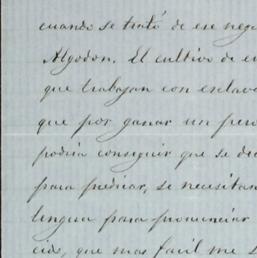 cuando se trató de ese neg
Algodon. El cultivo de e
que trabajan con esclav
que por ganar un pes
podria conseguir que se de
para predicar, se necesitan
lengua para pronunciar
cio, que mas facil me s